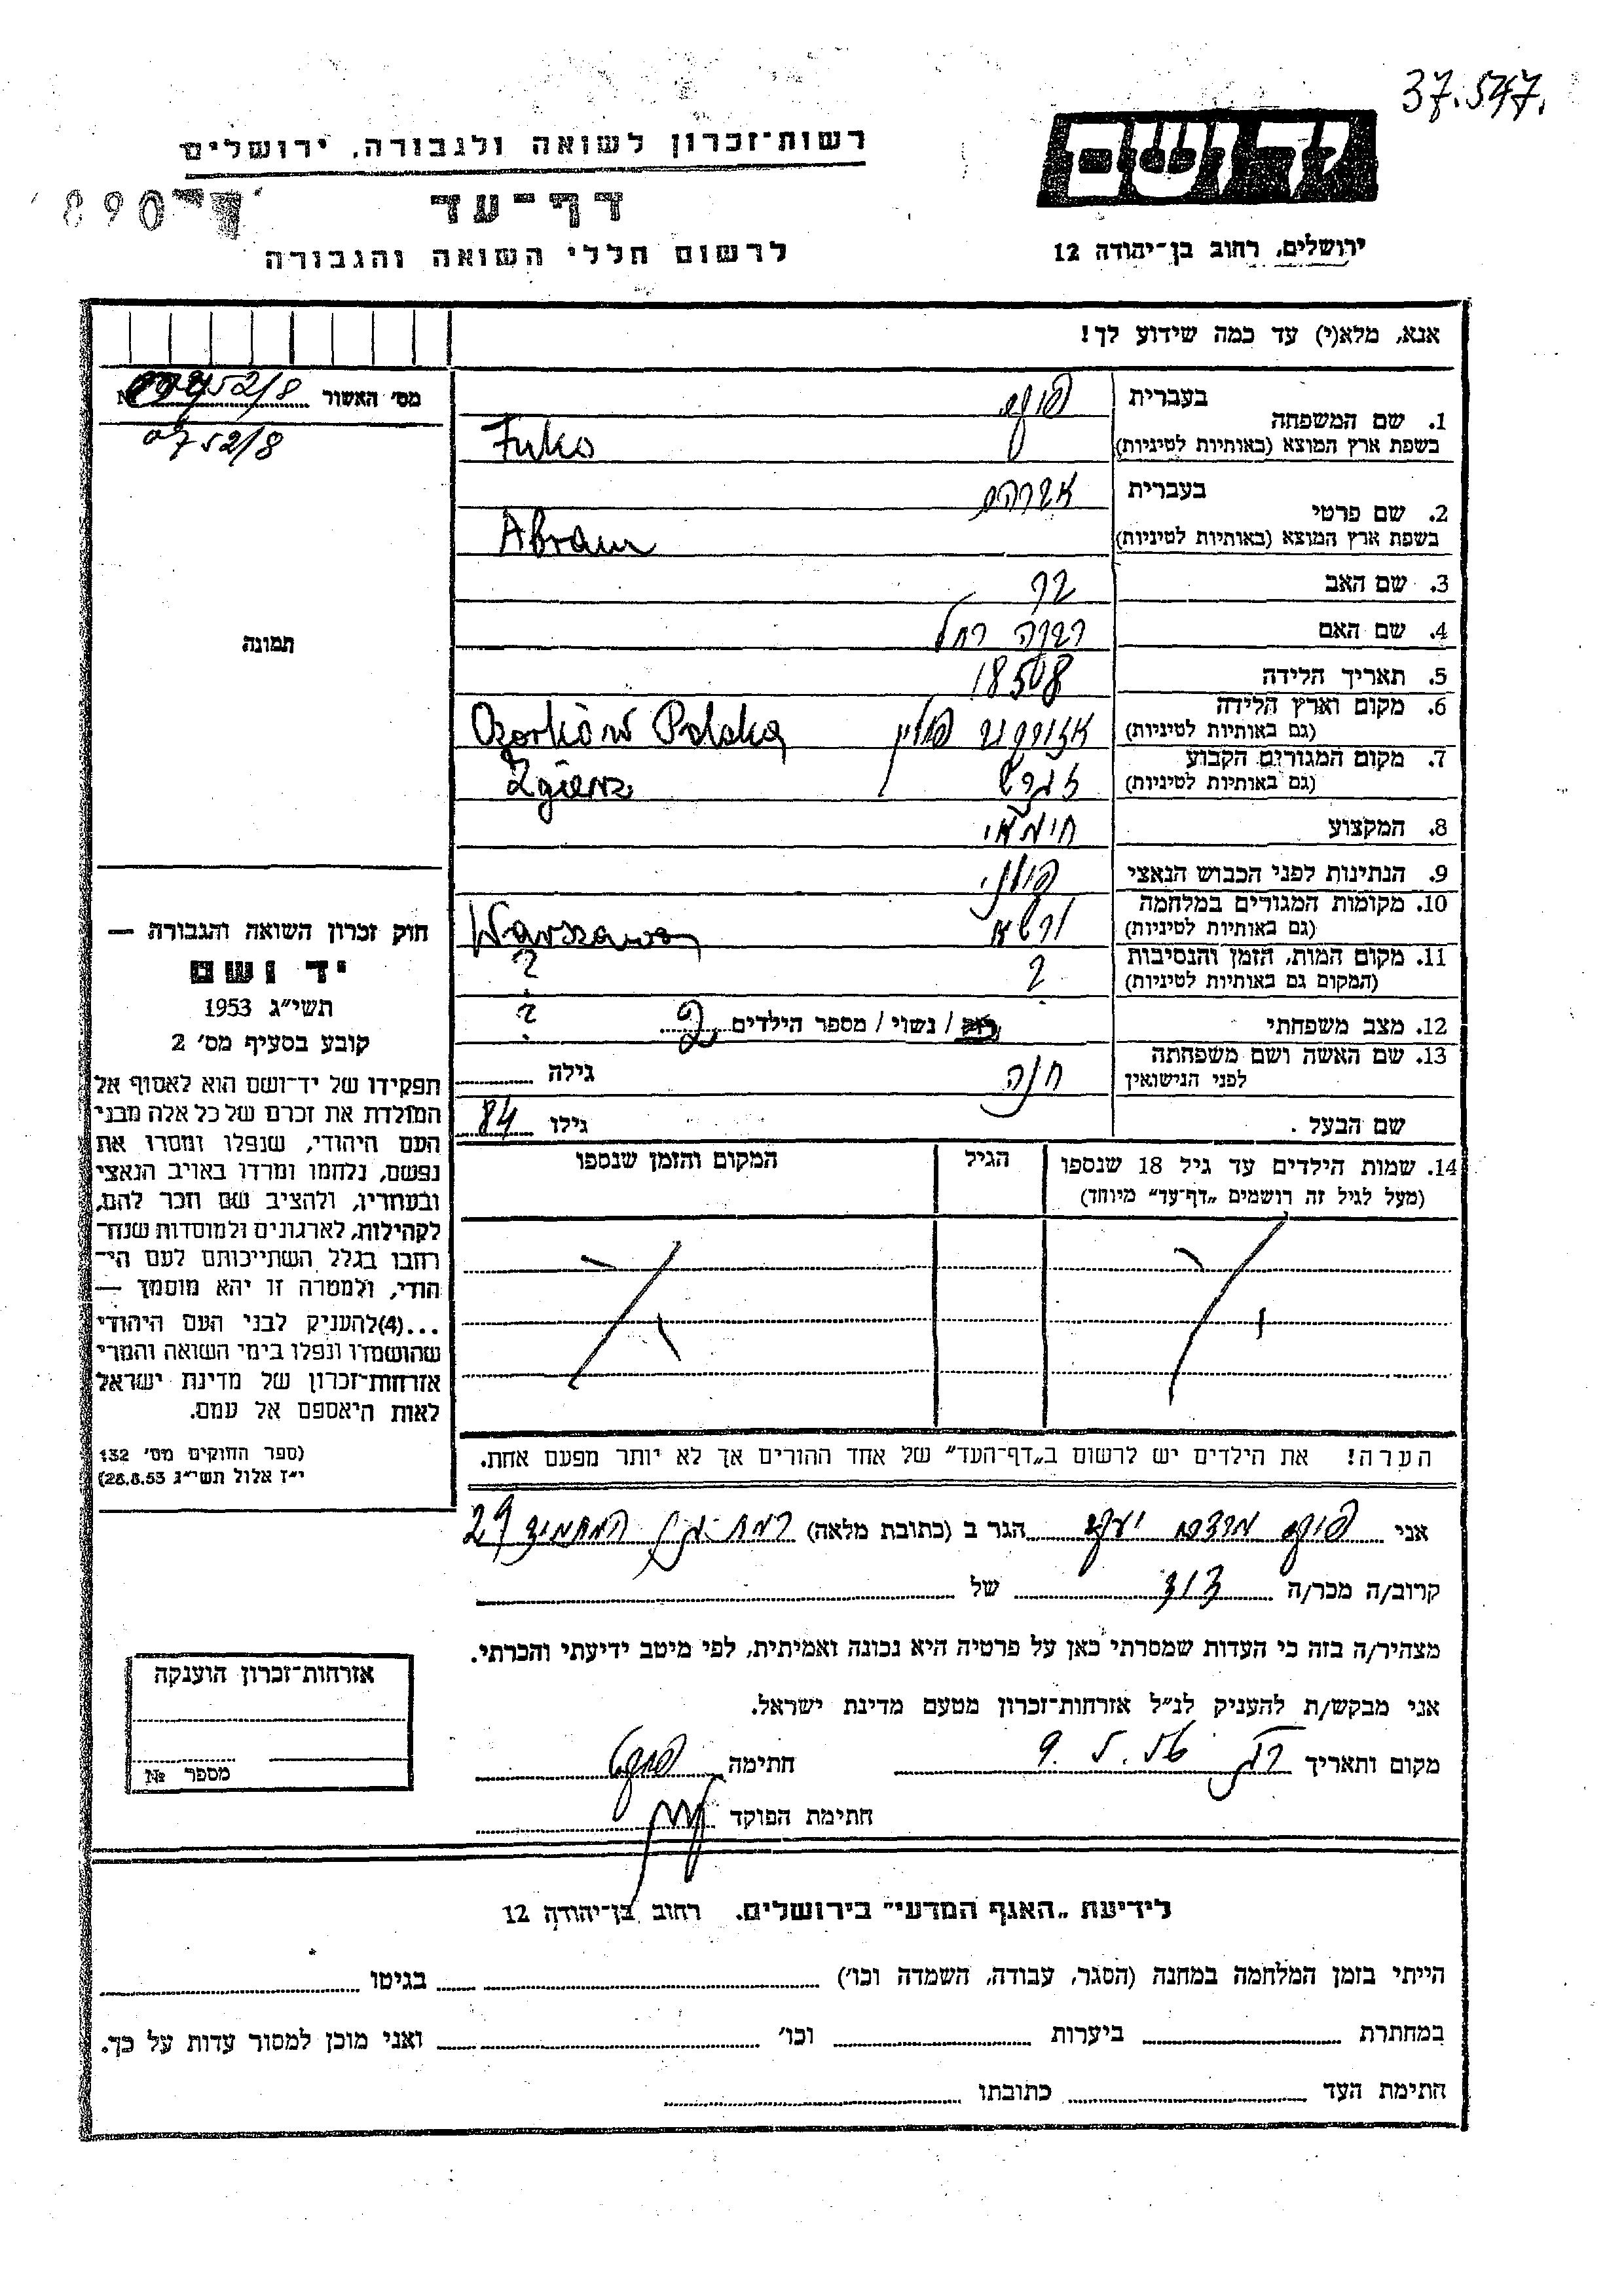 37.547.
יד ושם
רשות־זכרון לשואה ולגבורה, ירושלים
דף־עד
890
לרשום חללי השואה והגבורה
ירושלים, רחוב בן־יהודה 12
אנא, מלא(י) עד כמה שידוע לך!
מס' האשור 0752/8
0752/8
תמונה
1. שם המשפחה
בעברית
בשפת ארץ המוצא (באותיות לטיניות) Fuks
2. שם פרטי
בעברית אברהם
בשפת ארץ המוצא (באותיות לטיניות) Abram
3. שם האב
4. שם האם רחל
5. תאריך הלידה
6. מקום וארץ הלידה
(גם באותיות לטיניות) פולין Ozorków Polska
7. מקום המגורים הקבוע
(גם באותיות לטיניות) Zgierz
8. המקצוע
9. הנתינות לפני הכבוש הנאצי פולני
10. מקומות המגורים במלחמה
(גם באותיות לטיניות) ורשא Warszawa
11. מקום המות, הזמן והנסיבות
(המקום גם באותיות לטיניות) ? ?
12. מצב משפחתי רוק / נשוי / מספר הילדים 2 ?
13. שם האשה ושם משפחתה
לפני הנישואין חנה גילה
שם הבעל. גילו 84
14. שמות הילדים עד גיל 18 שנספו
(מעל לגיל זה רושמים „דף־עד" מיוחד)
הגיל
המקום והזמן שנספו
הערה! את הילדים יש לרשום ב„דף־העד" של אחד ההורים אך לא יותר מפעם אחת.
חוק זכרון השואה והגבורה —
יד ושם
תשי"ג 1953
קובע בסעיף מס' 2
תפקידו של יד־ושם הוא לאסוף אל
המולדת את זכרם של כל אלה מבני
העם היהודי, שנפלו ומסרו את
נפשם, נלחמו ומרדו באויב הנאצי
ובעוזריו, ולהציב שם וזכר להם,
לקהילות, לארגונים ולמוסדות שנח־
רחבו בגלל השתייכותם לעם הי־
הודי, ולמטרה זו יהא מוסמך —
...(4)להעניק לבני העם היהודי
שהושמדו ונפלו בימי השואה והמרי
אזרחות־זכרון של מדינת ישראל
לאות היאספם אל עמם.
(ספר החוקים מס' 132
י"ז אלול תשי"ג 28.8.53)
אני הגר ב (כתובת מלאה) רמת גן 29
קרוב/ה מכר/ה של
מצהיר/ה בזה כי העדות שמסרתי כאן על פרטיה היא נכונה ואמיתית, לפי מיטב ידיעתי והכרתי.
אני מבקש/ת להעניק לנ"ל אזרחות־זכרון מטעם מדינת ישראל.
מקום ותאריך רג 9.5.56 חתימה
חתימת הפוקד
אזרחות־זכרון הוענקה
מספר №
לידיעת „האגף המדעי" בירושלים. רחוב בן־יהודה 12
הייתי בזמן המלחמה במחנה (הסגר, עבודה, השמדה וכו') בגיטו
במחתרת ביערות וכו' ואני מוכן למסור עדות על כך.
חתימת העד כתובתו